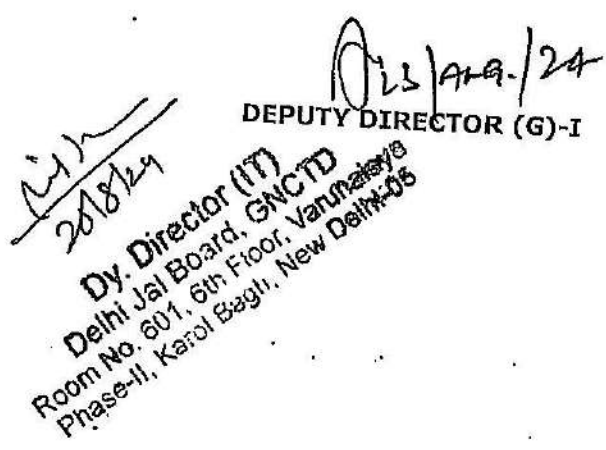 23/AUG./24
DEPUTY DIRECTOR (G)-I
26/8/24
Dy. Director (IT)
Delhi Jal Board, GNCTD
Room No. 601, 6th Floor, Varunalaya
Phase-II, Karol Bagh, New Delhi-05